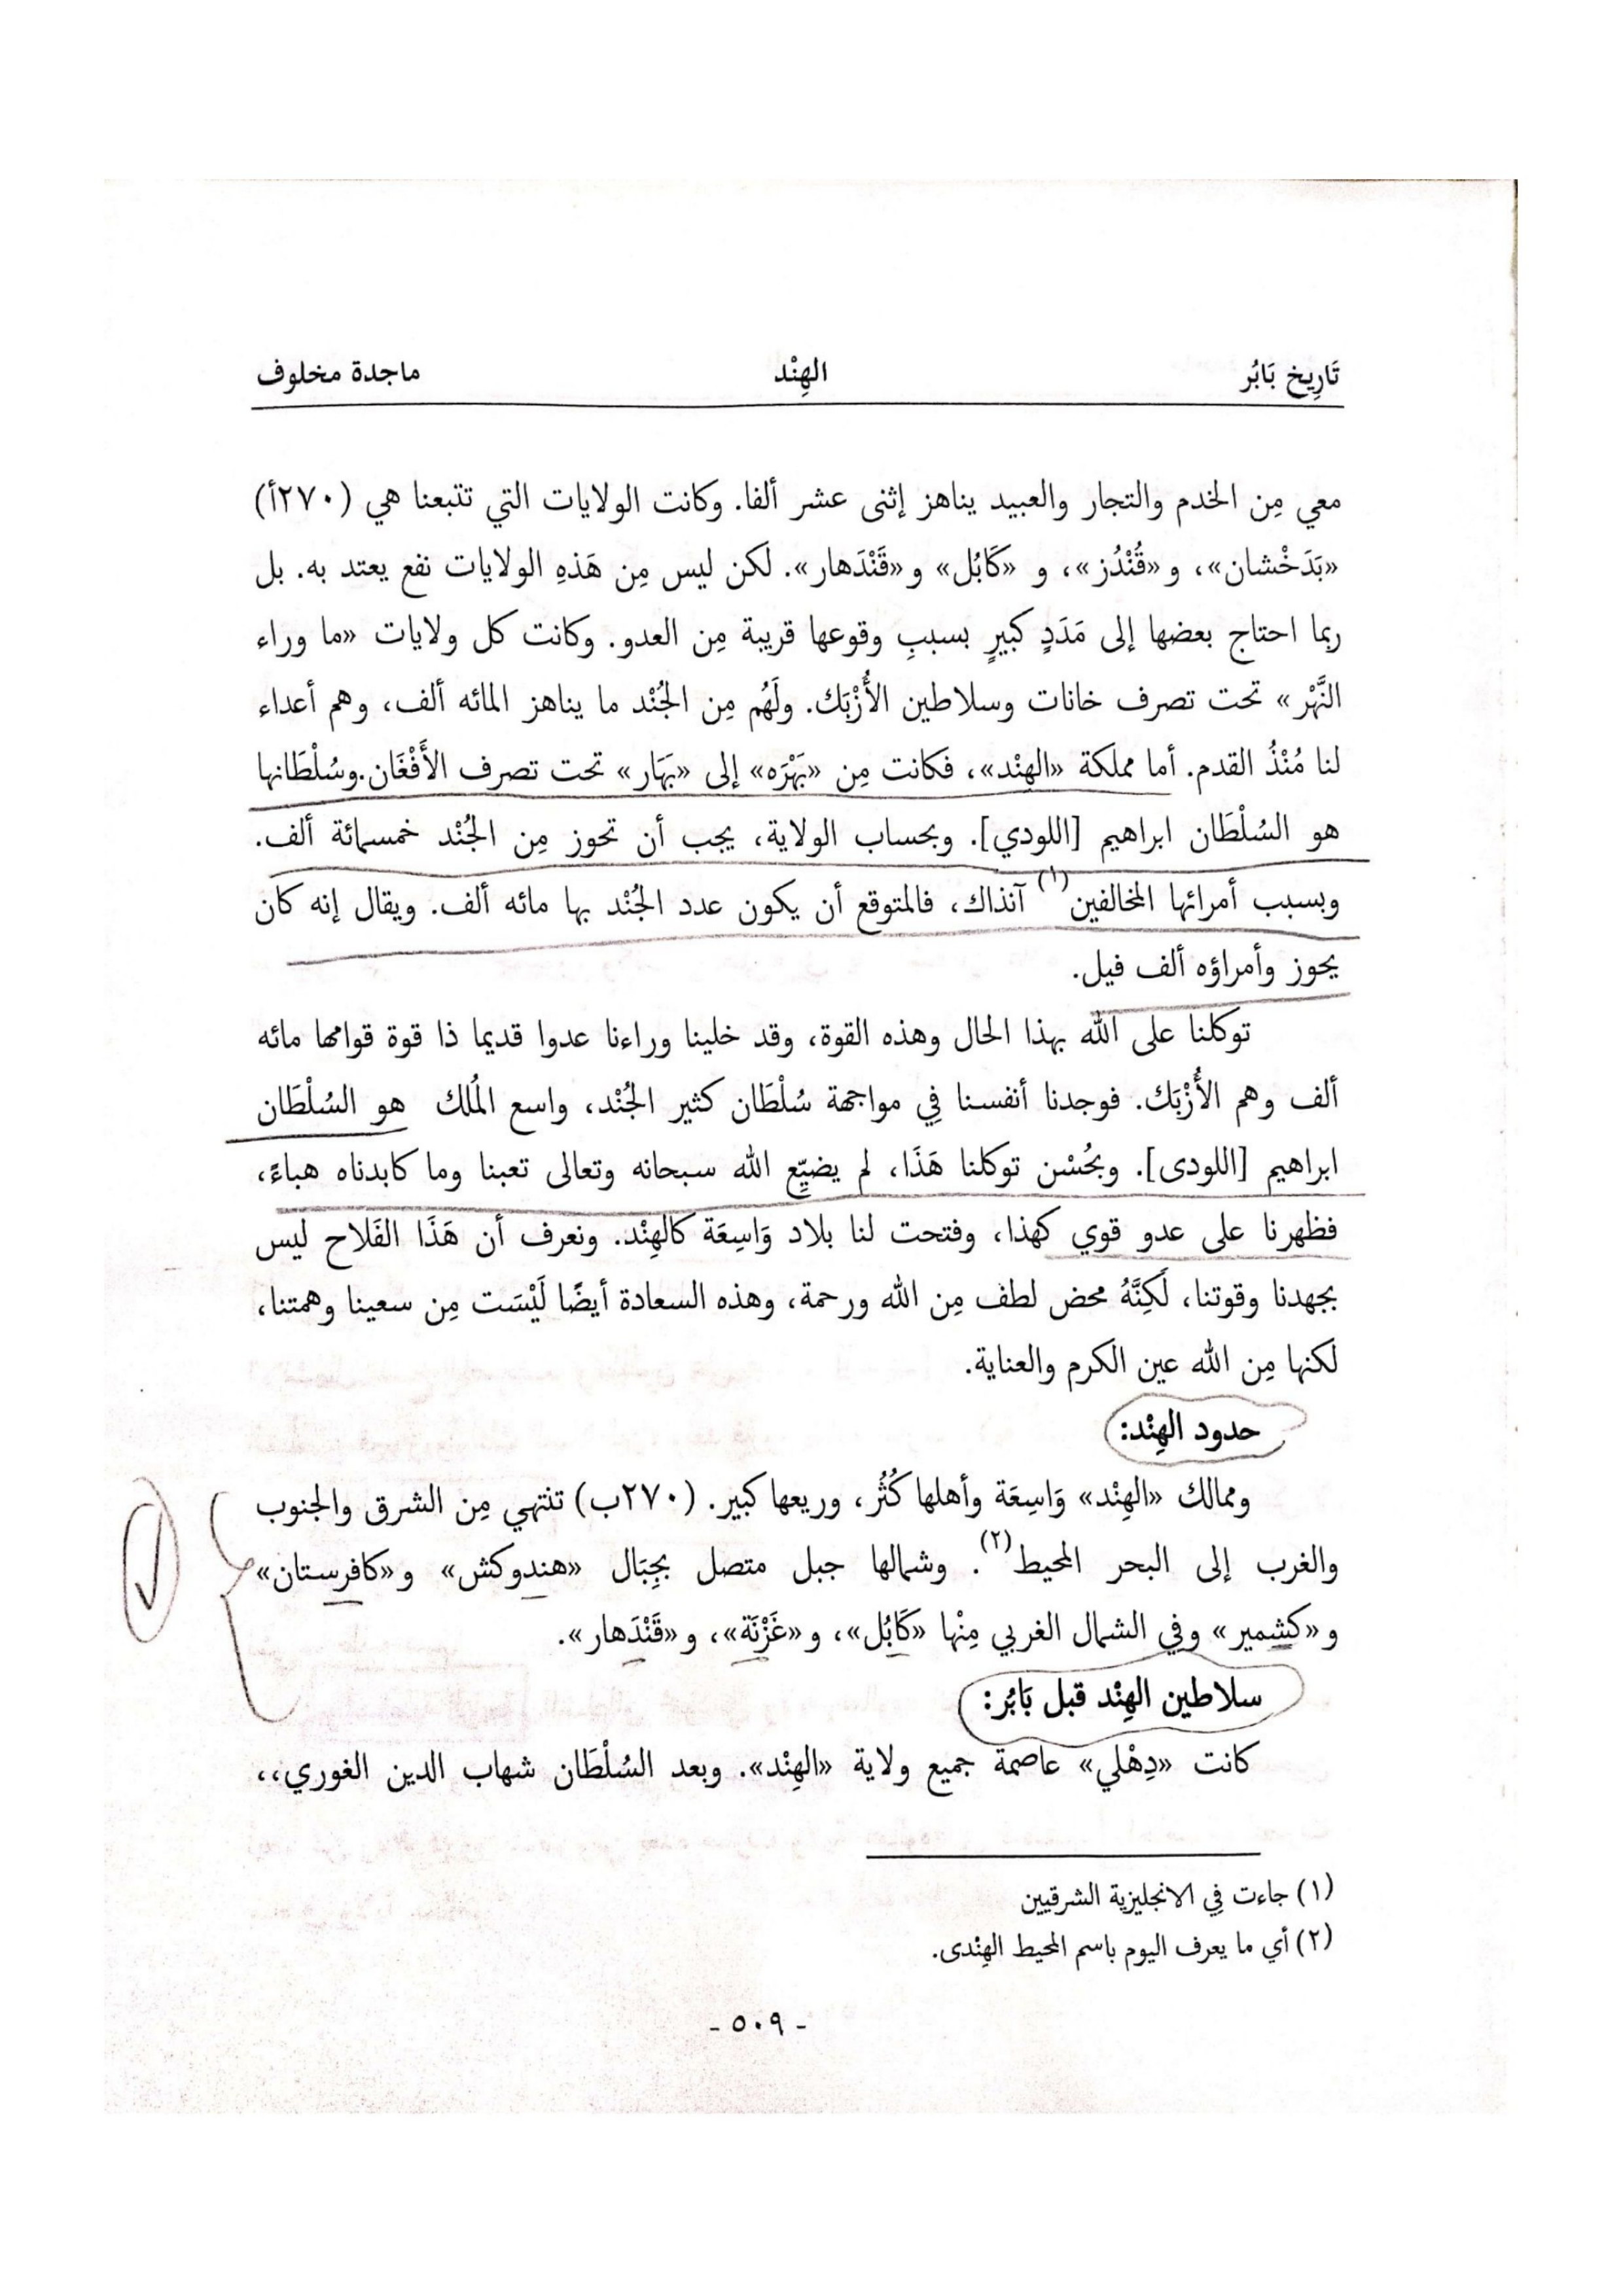 تَارِيخ بَابُر الهِنْد ماجدة مخلوف
معي مِن الخدم والتجار والعبيد يناهز إثنى عشر ألفا. وكانت الولايات التي تتبعنا هي (٢٧٠أ)
«بَدَخْشان»، و«قُنْدُز»، و «كَابُل» و«قَنْدَهار». لكن ليس مِن هَذهِ الولايات نفع يعتد به. بل
ربما احتاج بعضها إلى مَدَدٍ كبيرٍ بسببِ وقوعها قريبة مِن العدو. وكانت كل ولايات «ما وراء
النَّهْر» تحت تصرف خانات وسلاطين الأُزْبَك. ولَهُم مِن الجُنْد ما يناهز المائه ألف، وهم أعداء
لنا مُنْذُ القدم. أما مملكة «الهِنْد»، فكانت مِن «بَهْرَه» إلى «بَهَار» تحت تصرف الأَفْغَان.وسُلْطَانها
هو السُلْطَان ابراهيم [اللودي]. وبحساب الولاية، يجب أن تحوز مِن الجُنْد خمسمائة ألف.
وبسبب أمرائها المخالفين(١) آنذاك، فالمتوقع أن يكون عدد الجُنْد بها مائه ألف. ويقال إنه كان
يحوز وأمراؤه ألف فيل.
توكلنا على الله بهذا الحال وهذه القوة، وقد خلينا وراءنا عدوا قديما ذا قوة قوامها مائه
ألف وهم الأُزْبَك. فوجدنا أنفسنا فِي مواجهة سُلْطَان كثير الجُنْد، واسع المُلك هو السُلْطَان
ابراهيم [اللودى]. وبحُسْن توكلنا هَذَا، لم يضيِّع الله سبحانه وتعالى تعبنا وما كابدناه هباءً،
فظهرنا على عدو قوي كهذا، وفتحت لنا بلاد وَاسِعَة كالهِنْد. ونعرف أن هَذَا الفَلاح ليس
بجهدنا وقوتنا، لَكِنَّهُ محض لطف مِن الله ورحمة، وهذه السعادة أيضًا لَيْسَت مِن سعينا وهمتنا،
لكنها مِن الله عين الكرم والعناية.
حدود الهِنْد:
وممالك «الهِنْد» وَاسِعَة وأهلها كُثُر، وريعها كبير. (٢٧٠ب) تنتهي مِن الشرق والجنوب
والغرب إلى البحر المحيط(٢). وشمالها جبل متصل بجِبَال «هندوكش» و«كافرستان»
و«كشمير» وفي الشمال الغربي مِنْها «كَابُل»، و«غَزْنَة»، و«قَنْدَهار».
سلاطين الهِنْد قبل بَابُر:
كانت «دِهْلي» عاصمة جميع ولاية «الهِنْد». وبعد السُلْطَان شهاب الدين الغوري،،
(١) جاءت فِي الانجليزية الشرقيين
(٢) أي ما يعرف اليوم باسم المحيط الهِنْدى.
- ٥٠٩ -